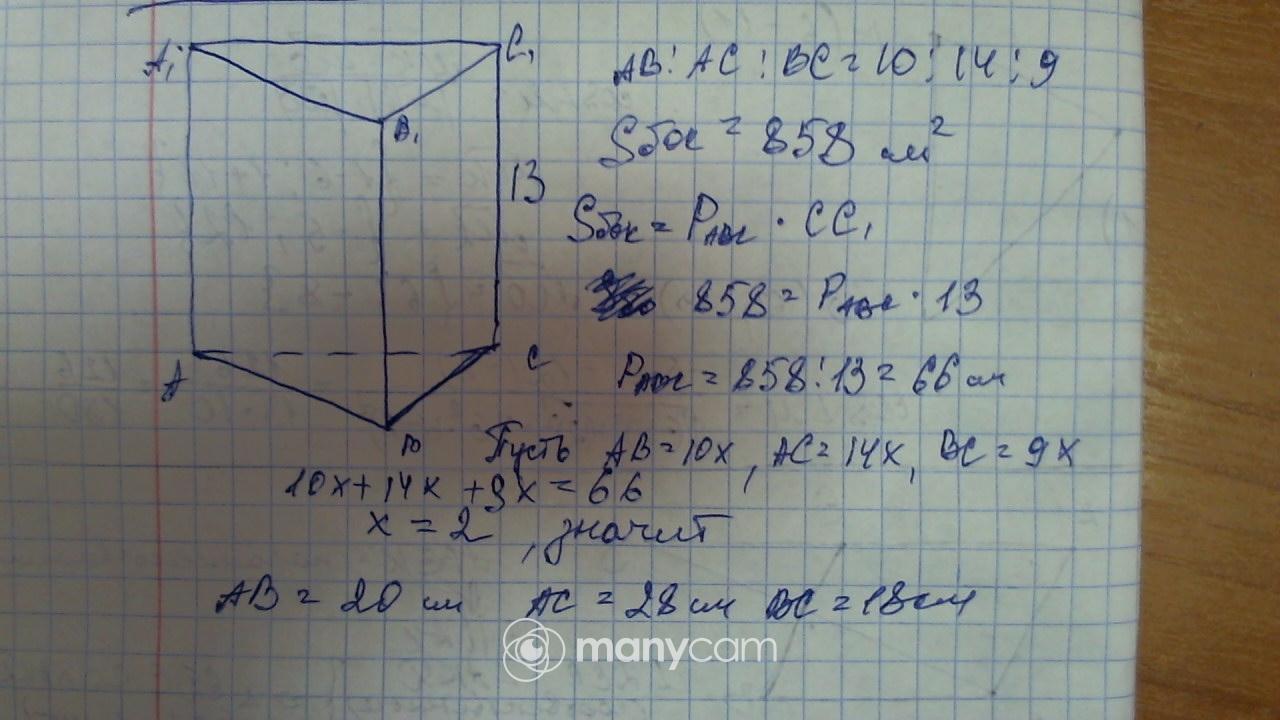 A₁
C₁
B₁
13
A
C
B
AB : AC : BC = 10 : 14 : 9
Sбок = 858 см²
Sбок = P_ABC · CC₁
858 = P_ABC · 13
P_ABC = 858 : 13 = 66 см
Пусть AB = 10x, AC = 14x, BC = 9x
10x + 14x + 9x = 66
x = 2, значит
AB = 20 см AC = 28 см BC = 18 см
manycam